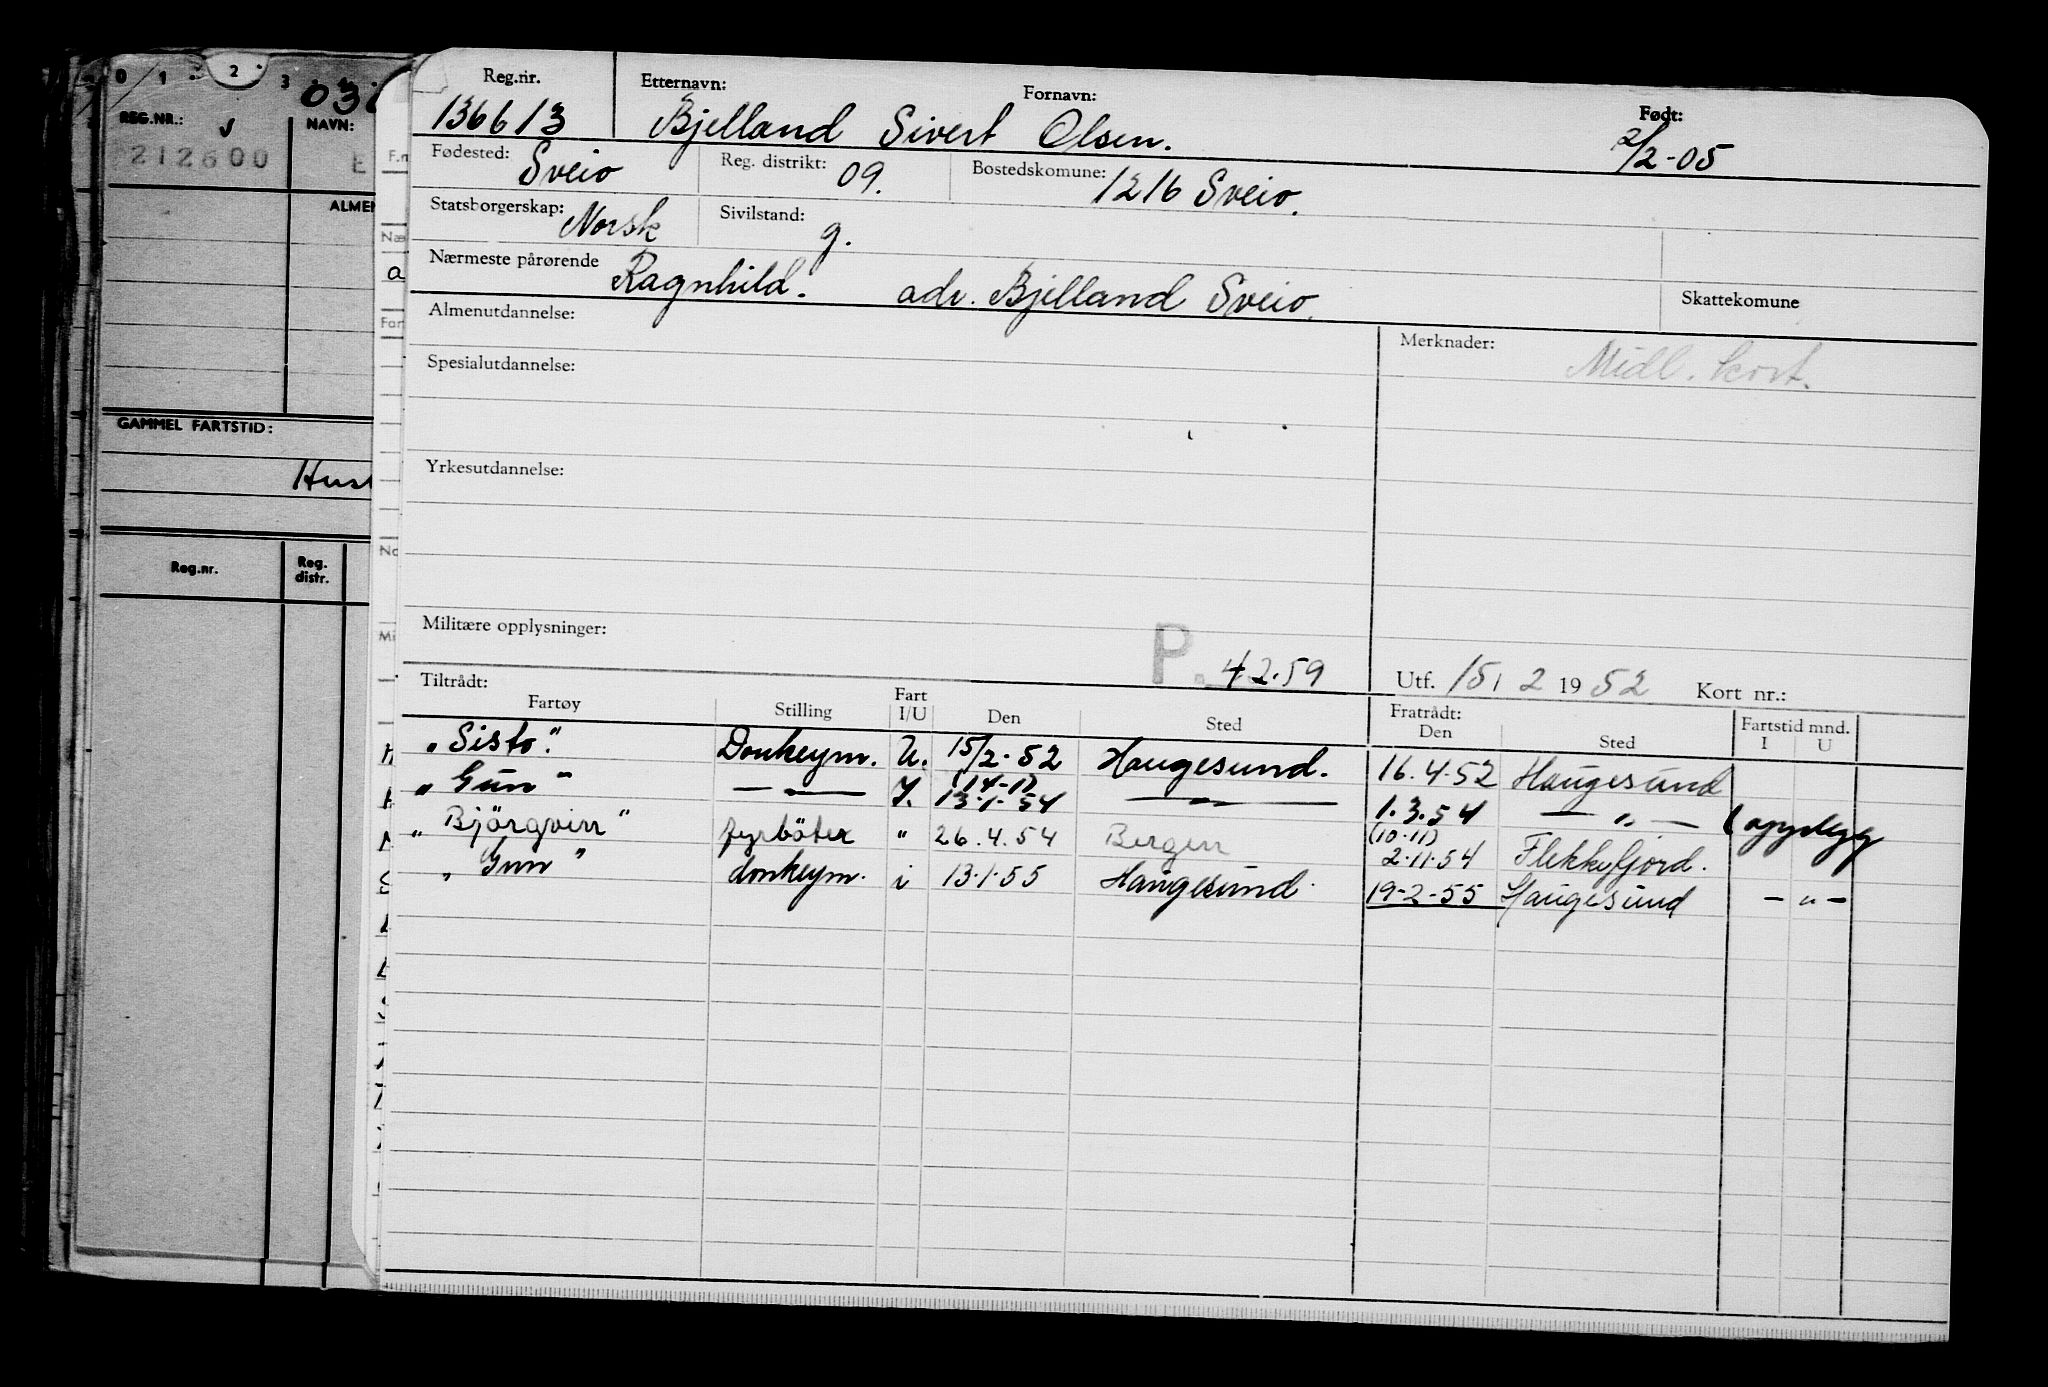 0 1 2 3 4
036
REG.NR.: NAVN:
212600 E
ALMEN
GAMMEL FARTSTID:
Hust
Reg.nr. Reg. distr.
Reg.nr. Etternavn: Fornavn: Født:
136613 Bjelland Sivert Olsen. 2/2-05
Fødested: Sveio Reg. distrikt: 09. Bostedskomune: 1216 Sveio.
Statsborgerskap: Norsk Sivilstand: g.
Nærmeste pårørende Ragnhild. adr. Bjelland Sveio. Skattekomune
Almenutdannelse: Merknader: Midl. kort.
Spesialutdannelse:
Yrkesutdannelse:
Militære opplysninger: P. 4.2.59 Utf. 15/2 1952 Kort nr.:
Tiltrådt: Fratrådt:
Fartøy Stilling Fart I/U Den Sted Den Sted Fartstid mnd. I U
"Sisto." Donkeym. U. 15/2-52 Haugesund. 16.4.52 Haugesund
(14-1)
"Gun" — — I. 13.1.54 — " — 1.3.54 — " — ( opplegg
(10-11)
"Bjørgvin" fyrbøter " 26.4.54 Bergen 2.11.54 Flekkefjord.
"Gun" donkeym. i 13.1.55 Haugesund. 19-2-55 Haugesund — " —